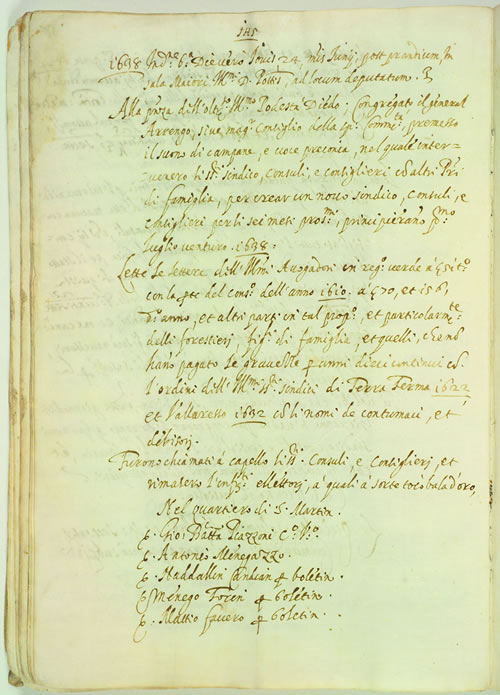 145
1638 Ind.ne 6.a Die vero Jovis 24 m̃is Junij, post prandium, In
sala Maiori Ill.mi D. Pottis, ad locum deputatum.
Alla p̃nza dell' Ill.mo Podestà Diedo; Congregato il general
Arrengo, sive mag.r Consiglio della sp. Comm.tà, premesso
il suono di campana, e voce preconia, nel quale inter-
venero li sindico, Consuli, e consiglieri et altri P̃ri
di famiglia, per crear un novo sindico, Consuli, e
consiglieri per li sei mesi pros.mi, principieranno p.mo
luglio venturo. 1638.
Lette le lettere dell' Ill.mi Avogadori in reg.o verde a
con la p̃te del Cons.o dell'anno 1610. a 70, et 156,
anno, et altri parti in tal prop.o, et particolarm.te
delli forestieri, di famiglia, et quelli, che nõ
hano pagato le gravezze p̱ anni dieci continui
l'ordini dell' Ill.mi sindici di Terra Ferma 1622
et Vallaresso 1632 li nomi de contumaci, et
debitorj.
Furono chiamati a capello li Consuli, e Consiglierj, et
rimasero l'infr.i ellettorj, a quali a sorte tocò bala d'oro,
Nel quartiero di S. Martin.
Gio: Batta Piazzoni
Antonio Menegazzo.
Maddallin p̱ boletin.
Menego p̱ boletin.
Mattio p̱ boletin.